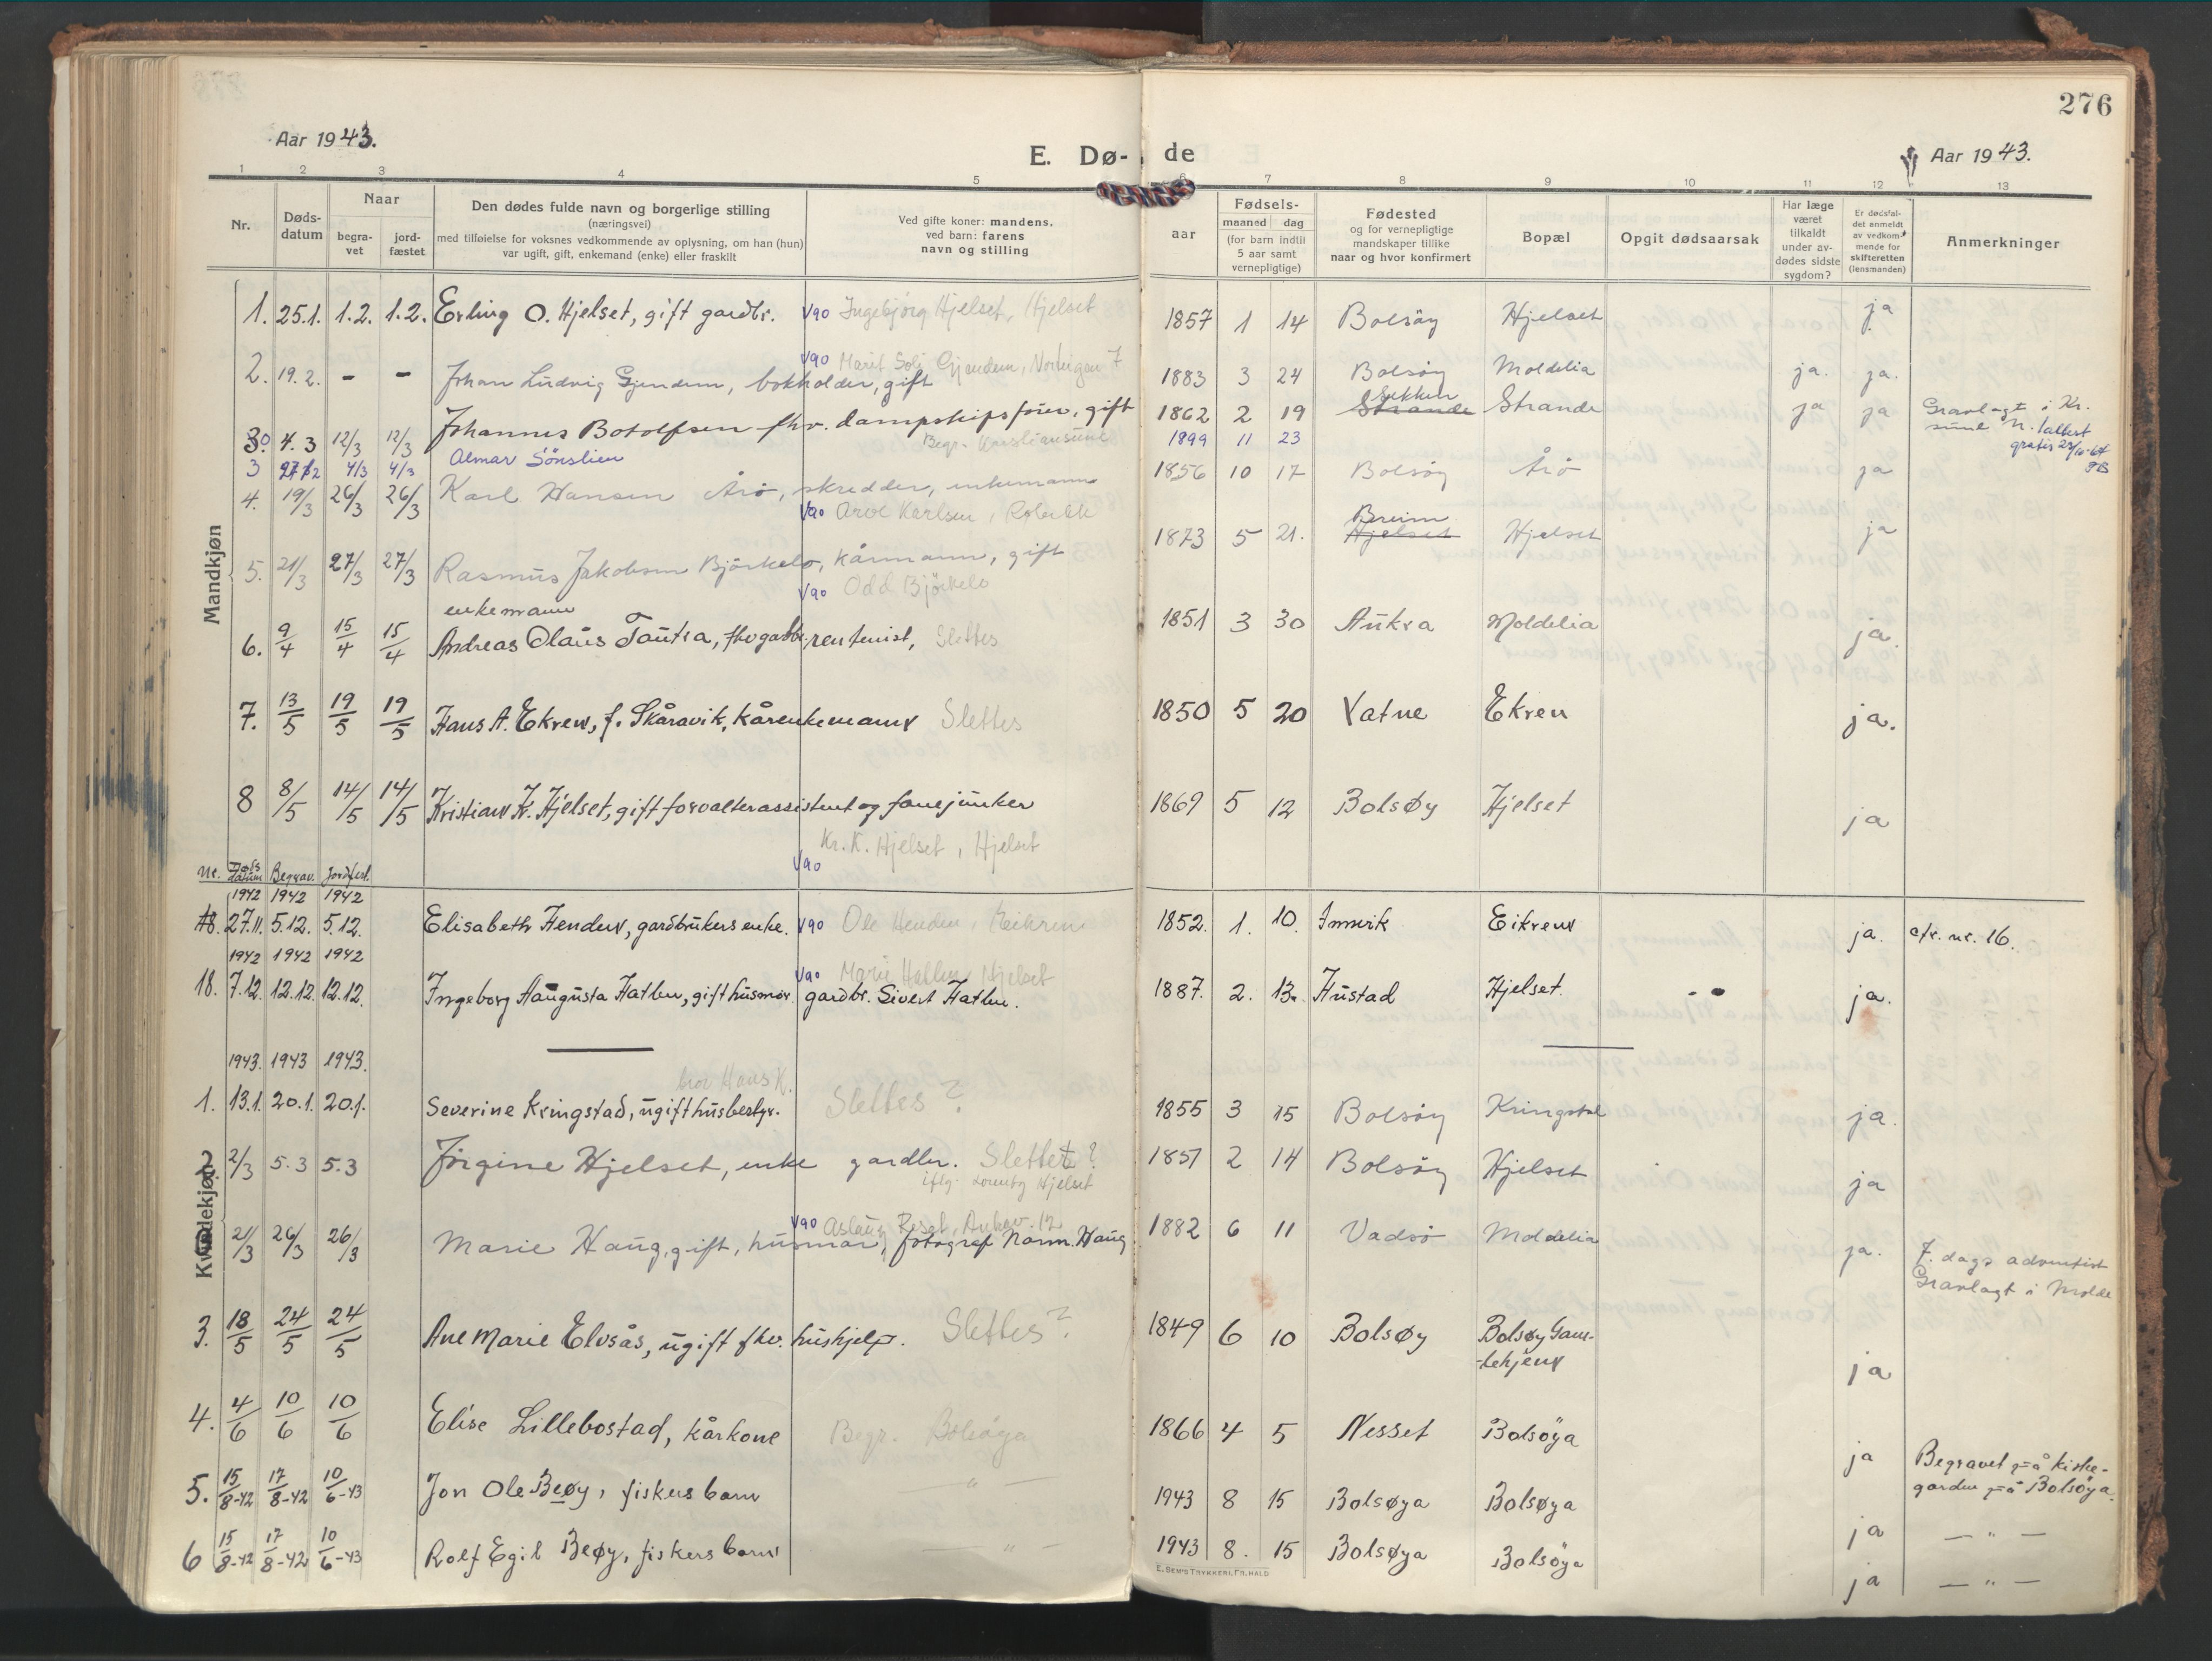 276
Aar 1943.
E. Dø- de
Aar 1943.
1 2 3 4 5 6 7 8 9 10 11 12 13
Nr.
Døds-
datum
Naar
begra-
vet
jord-
fæstet
Den dødes fulde navn og borgerlige stilling
(næringsvei)
med tilføielse for voksnes vedkommende av oplysning, om han (hun)
var ugift, gift, enkemand (enke) eller fraskilt
Ved gifte koner: mandens,
ved barn: farens
navn og stilling
Fødsels-
aar
maaned dag
(for barn indtil
5 aar samt
vernepligtige)
Fødested
og for vernepligtige
mandskaper tillike
naar og hvor konfirmert
Bopæl
Opgit dødsaarsak
Har læge
været
tilkaldt
under av-
dødes sidste
sygdom?
Er dødsfal-
det anmeldt
av vedkom-
mende for
skifteretten
(lensmanden)
Anmerkninger
Mandkjøn
1. 25.1. 1.2. 1.2. Erling O. Hjelset, gift gardbr. Vao Ingebjørg Hjelset, Hjelset 1857 1 14 Bolsöy Hjelset ja
Vao Marit Solj Gjendem, 
2. 19.2. - - Johan Ludvig Gjendem, bokholder, gift 1883 3 24 Bolsöy Moldelia ja. ja.
Sekken
4.3 12/3 12/3 Johannes Botolfsen fhv. dampskipsfører, gift 1862 2 19 Strande Strande ja ja Gravlagt i Kr.
sund N. 
Begr. Kristiansund
gratis 23/10-64
3 27/2 4/3 4/3 Almar Sönslien 1899 11 23
4. 19/3 26/3 26/3 Karl Hansen Årö, skredder, enkemann 1856 10 17 Bolsöy Årö ja
Vao Arve Karlsen,
Breim
5. 21/3 27/3 27/3 Rasmus Jakobsen Björkelo, kårmann, gift 1873 5 21. Hjelset Hjelset ja
Vao Odd Björkelo
enkemann
6. 9/4 15/4 15/4 Andreas Olaus Tautra, fhv gardbr, rentenist, Slettes 1851 3 30 Aukra Moldelia ja.
7. 13/5 19/5 19/5 Hans A. Ekren, f. Skåravik, kårenkemann Slettes 1850 5 20 Vatne Ekren ja.
8 8/5 14/5 14/5 Kristian K. Hjelset, gift forvalterassistent og fanejunker 1869 5 12 Bolsøy Hjelset ja
Vao Kr. K. Hjelset, Hjelset
Nr. Dødsdatum Begrav. Jordfest.
Kvindekjøn
1942 1942 1942
18. 27.11. 5.12. 5.12. Elisabeth Henden, gardbrukers enke. Vao Ole Henden, Eikrem 1852. 1. 10. Innvik Eikrem ja. cfr. nr. 16.
1942 1942 1942
Vao Marie Hatlen Hjelset
18. 7.12. 12.12. 12.12. Ingeborg Augusta Hatlen, gift husmor. gardbr. Sivert Hatlen. 1887. 2. 13. Hustad Hjelset. ja.
1943. 1943 1943.
bror Hans K.
1. 13.1. 20.1. 20.1. Severine Kringstad, ugift husbestyr. Slettes? 1855 3 15 Bolsöy Kringstad ja.
2. 2/3 5.3 5.3 Jörgine Hjelset, enke gardbr. Slettet? 1857 2 14 Bolsöy Hjelset ja
iflg. Hjelset
Vao Aslaug 
21/3 26/3 26/3 Marie Haug, gift, husmor, fotograf Norm. Haug 1882 6 11 Vadsö Moldelia ja. 7. dags adventist
Gravlagt i Molde
3. 18/5 24/5 24/5 Ane Marie Elvsås, ugift fhv. hushjelp. Slettes? 1849 6 10 Bolsøy Bolsøy Gam-
-lehjem ja
4. 4/6 10/6 10/6 Elise Lillebostad, kårkone Begr. Bolsöya 1866 4 5 Nesset Bolsöya ja Begravet på kirke-
garden på Bolsöya.
5. 15/8-42 17/8-42 10/6-43 Jon Ole Beøy, fiskers barn - " - 1943 8 15 Bolsøya Bolsøya ja - " -
6 15/8-42 17/8-42 10/6-43 Rolf Egil Beøy, fiskers barn - " - 1943 8. 15 Bolsøya Bolsöya ja - " -
E. SEM'S TRYKKERI, FR. HALD